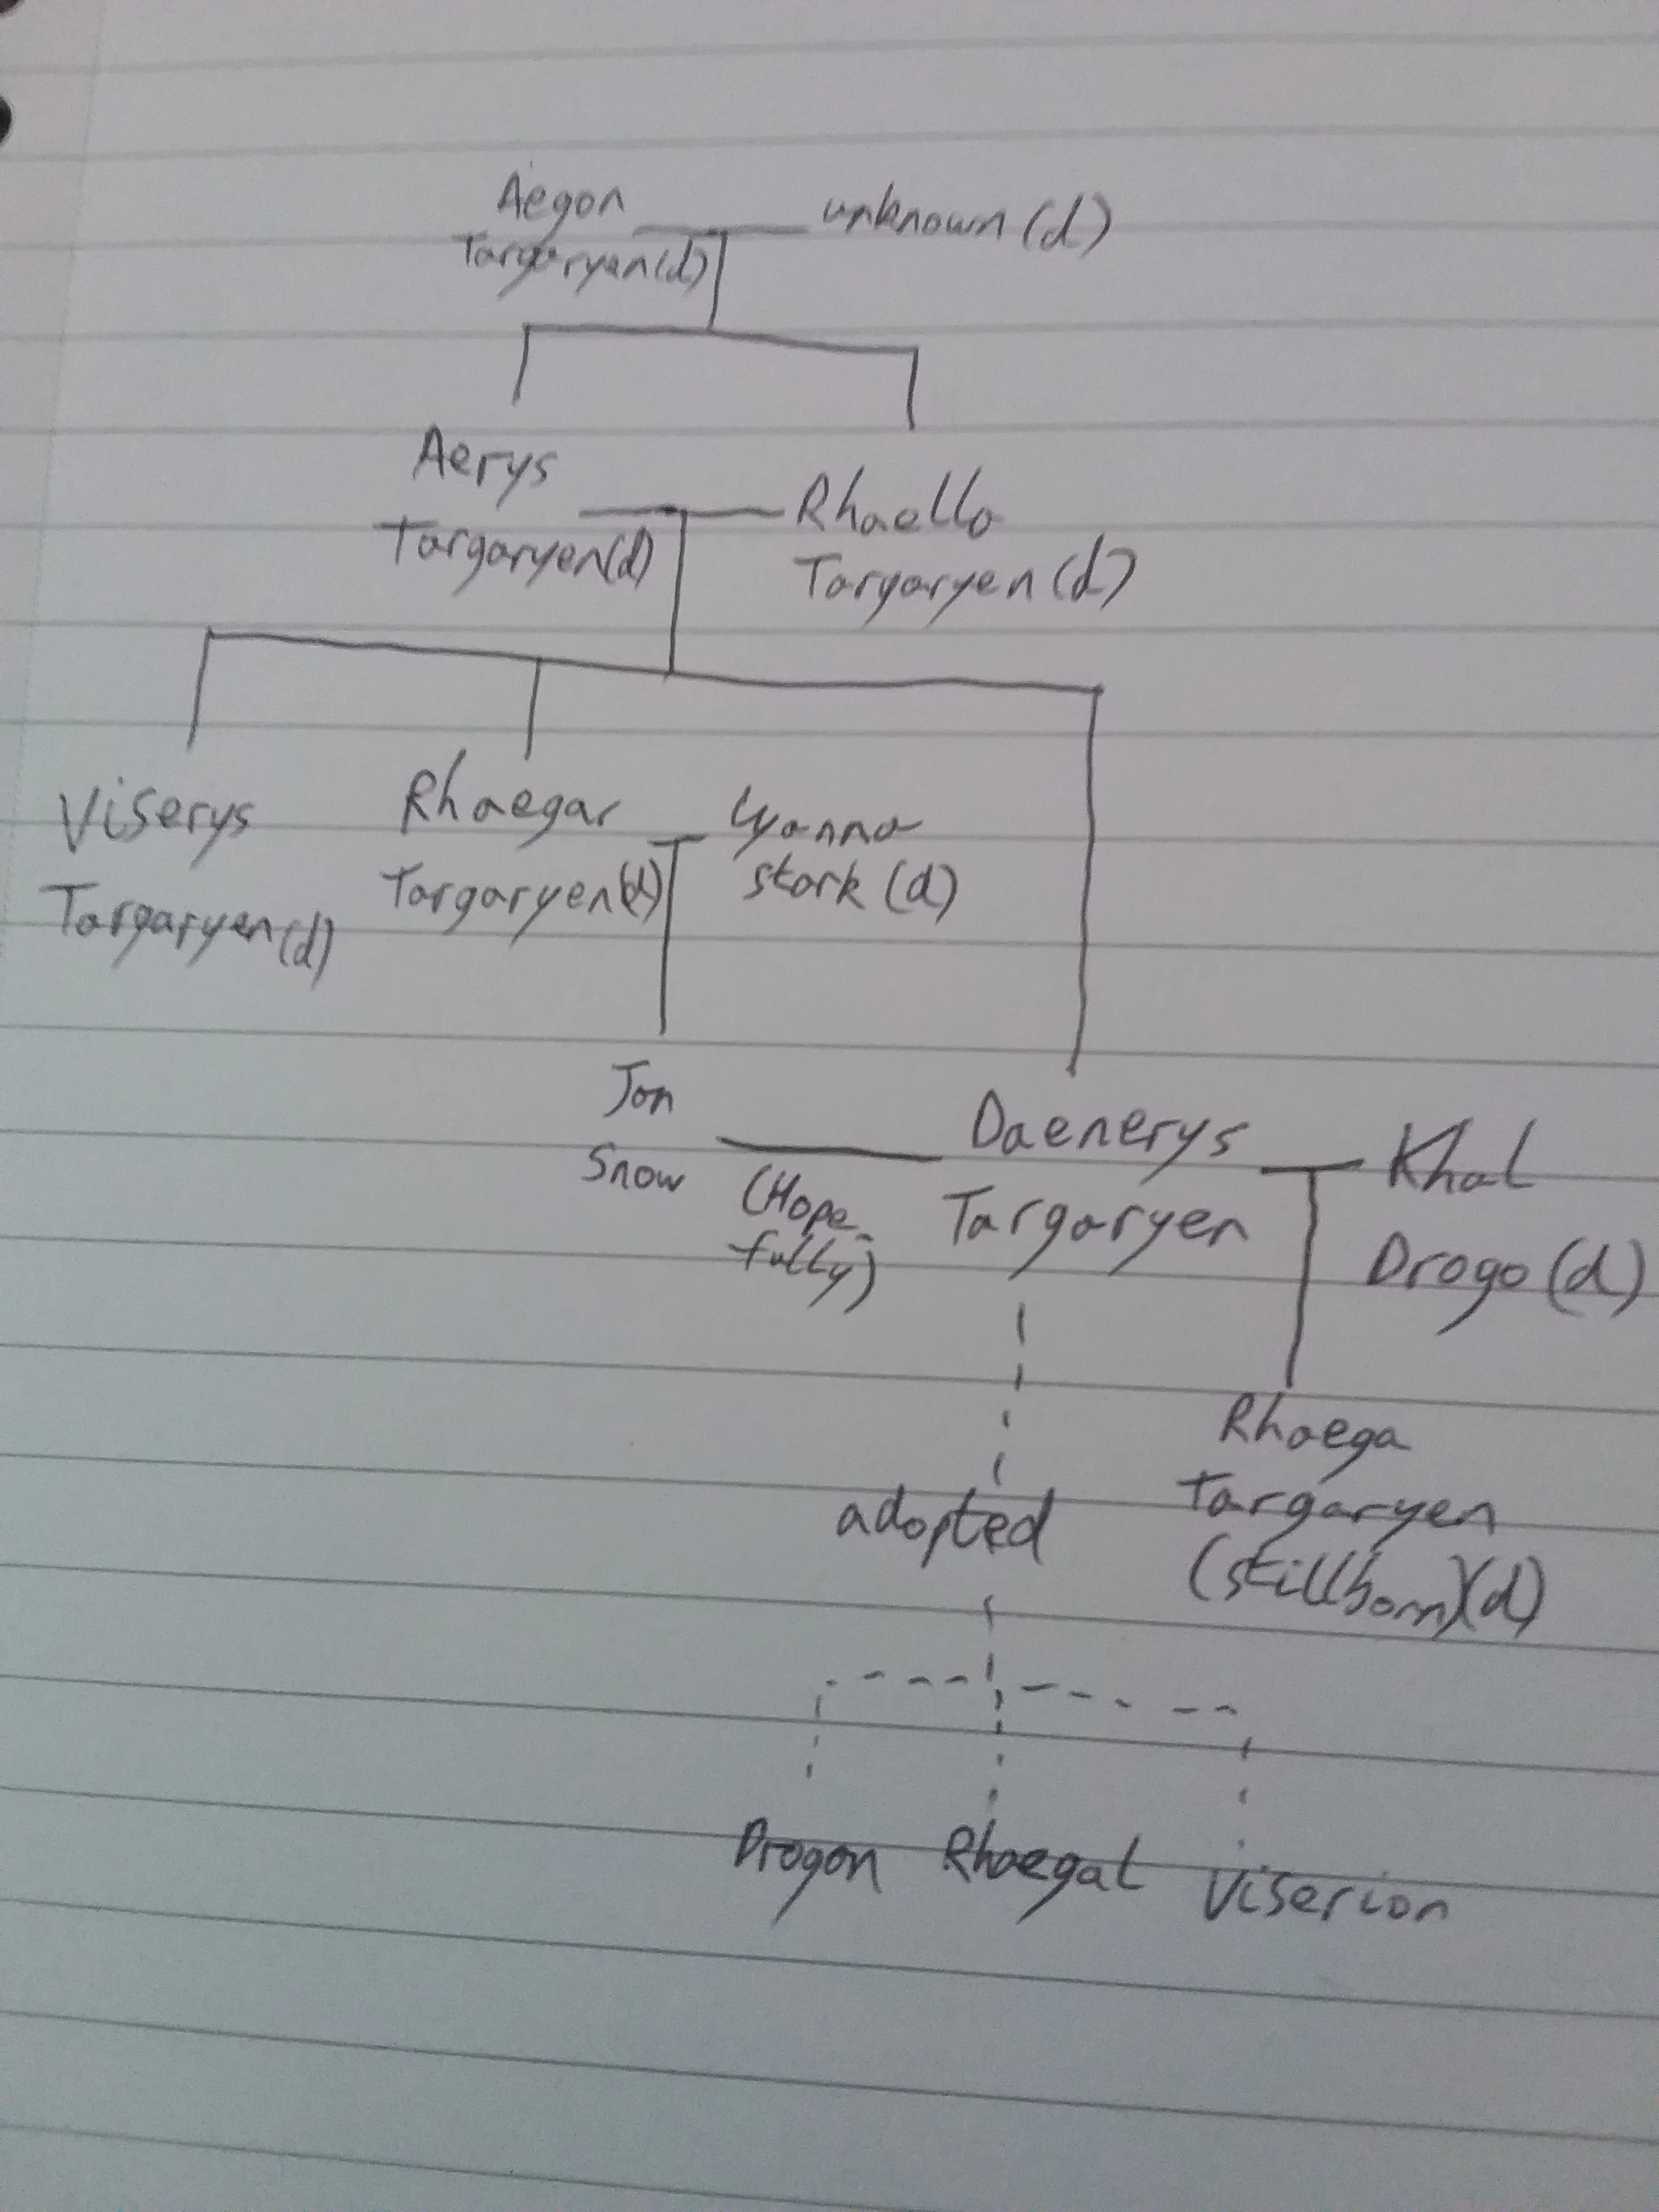 Aegon
Targaryen(d)
unknown (d)
Aerys
Targaryen(d)
Rhaella
Targaryen (d)
Viserys
Targaryen(d)
Rhaegar
Targaryen(d)
Lyanna
stark (d)
Jon
Snow
(Hope-
fully)
Daenerys
Targaryen
Khal
Drogo (d)
adopted
Rhaega
Targaryen
(stillborn)(d)
Drogon Rhaegal Viserion